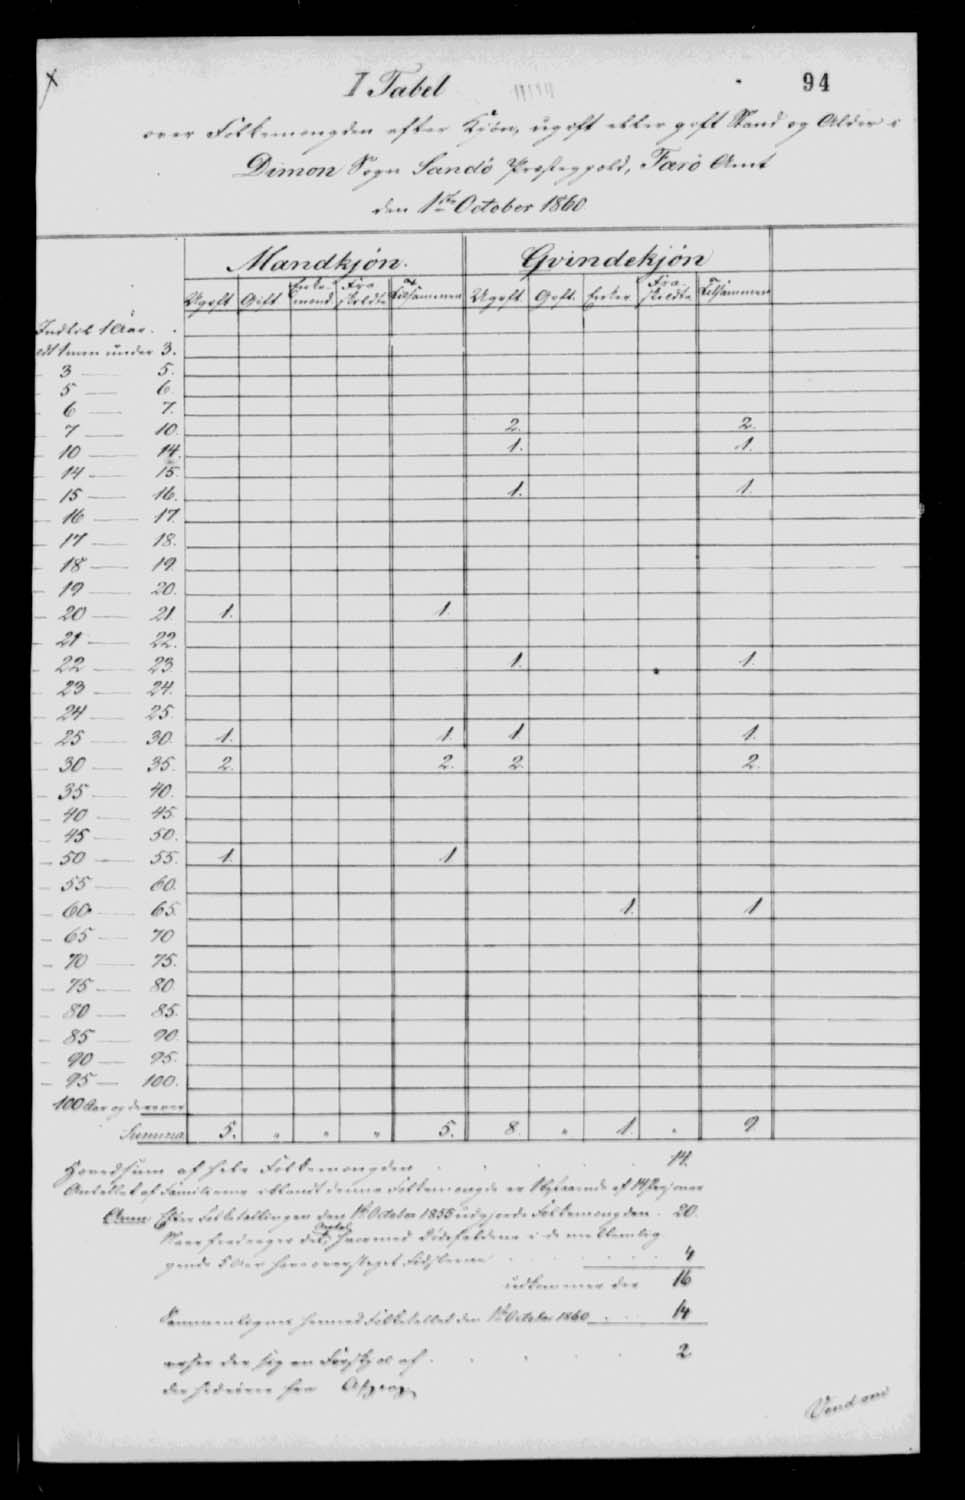 I Tabel
94
over Folkemængden efter Kjön, ugift eller gift Stand og Alder i
Dimon Sogn Sandö Præstegjæld, Færö Amt
den 1ste October 1860.
Mandkjön. Qvindekjön
Ugift Gift Enkemænd Fraskildte Tilsammen Ugift Gift. Enker Fraskildte Tilsammen
Indtil 1 Aar.
under 3.
3 — 5.
5 — 6.
6 — 7.
7 — 10. 2. 2.
10 — 14. 1. 1.
14 — 15.
15 — 16. 1. 1.
16 — 17.
17 — 18.
18 — 19.
19 — 20.
20 — 21. 1. 1.
21 — 22.
22 — 23 1. 1.
23 — 24.
24 — 25.
25 — 30. 1. 1. 1 1.
30 — 35. 2. 2. 2. 2.
35 — 40.
40 — 45.
45 — 50.
50 — 55. 1. 1
55 — 60.
60 — 65. 1. 1
65 — 70
70 — 75.
75 — 80.
80 — 85.
85 — 90.
90 — 95.
95 — 100.
100 Aar og derover
Summa 5. " " " 5. 8. " 1. " 9.
Hovedsum af hele Folkemængden 14.
Antallet af Familierne iblandt denne Folkemængde er af 14 Personer
Anm. Efter Folketællingen den 1ste October 1855 udgjorde Folkemængden 20.
Naar fradrages det Antal, hvormed Dödsfaldene i de mellemlig
gende 5 Aar have oversteget Födslerne 4
udkommer der 16
Sammenlignes hermed Folketallet den 1ste October 1860 14
viser der sig en Forskjel af 2
der hidrörer fra Afgang
Vend om